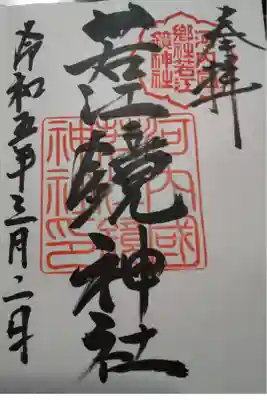 奉拝
河内国
郷社若江
鏡神社
若江鏡神社
河内國
若江鏡
神社印
令和五年三月二日